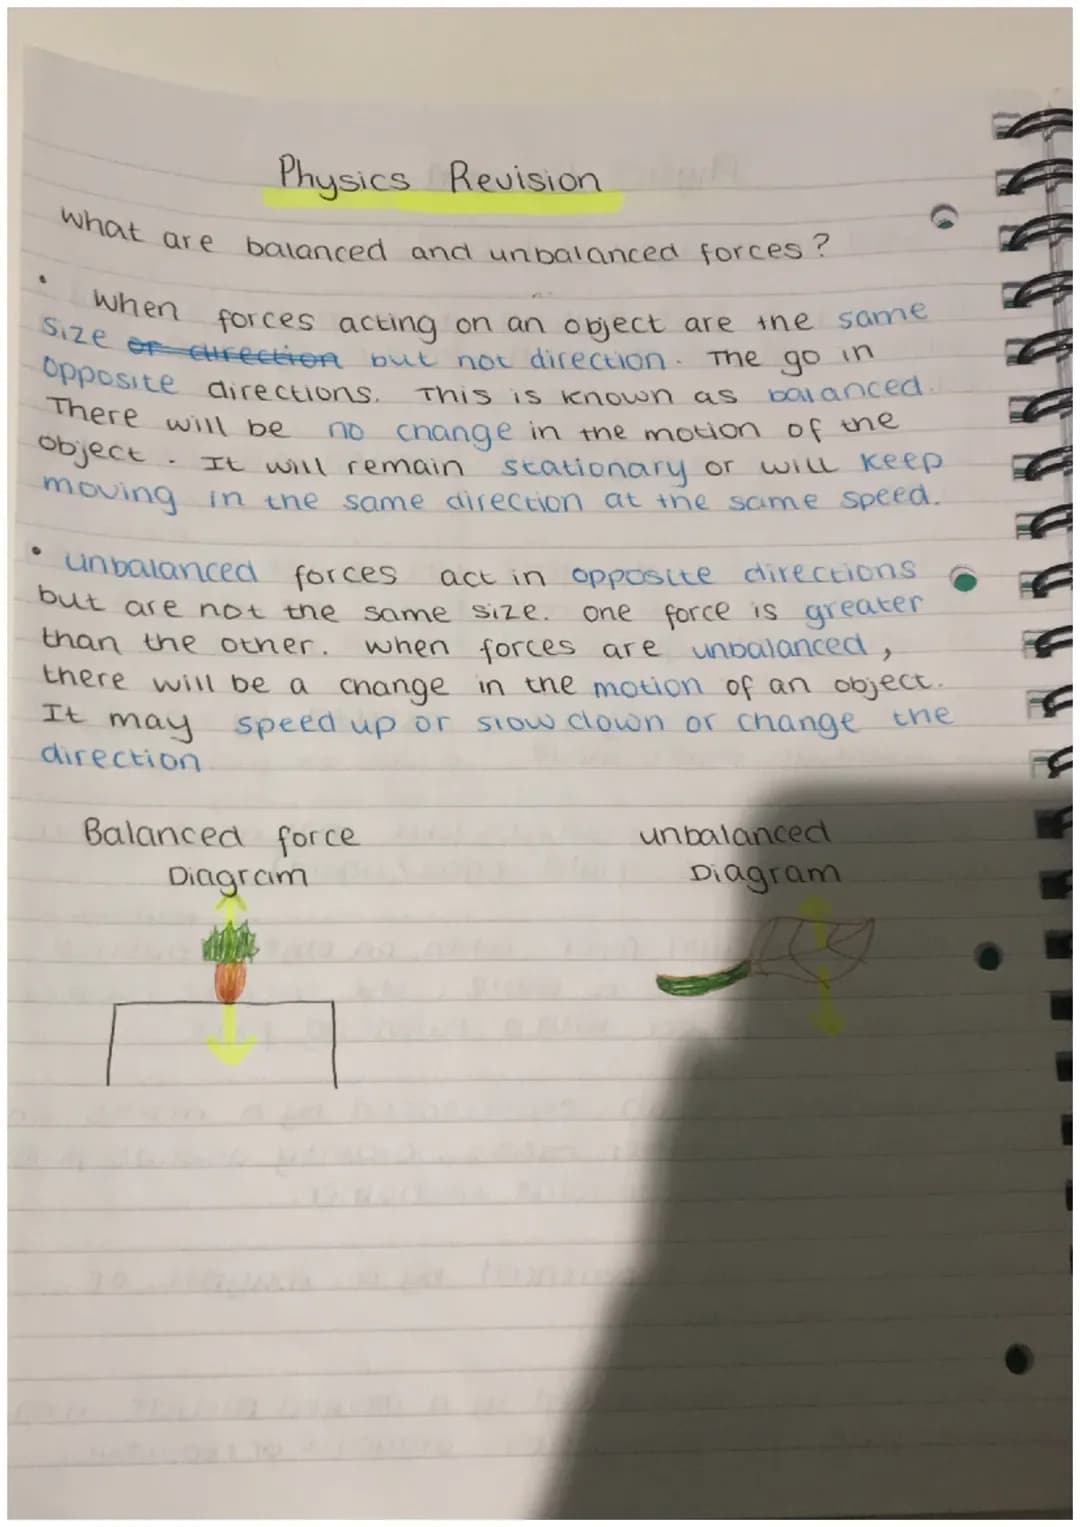 Physics Revision
What are balanced and unbalanced forces?
• When forces acting on an object are the same
size or direction but not direction. The go in
opposite directions. This is known as balanced.
There will be no change in the motion of the
object. It will remain stationary or will keep
moving in the same direction at the same speed.
• unbalanced forces act in opposite directions
but are not the same size. one force is greater
than the other. when forces are unbalanced,
there will be a change in the motion of an object.
It may speed up or slow down or change the
direction
Balanced force unbalanced
Diagram Diagram